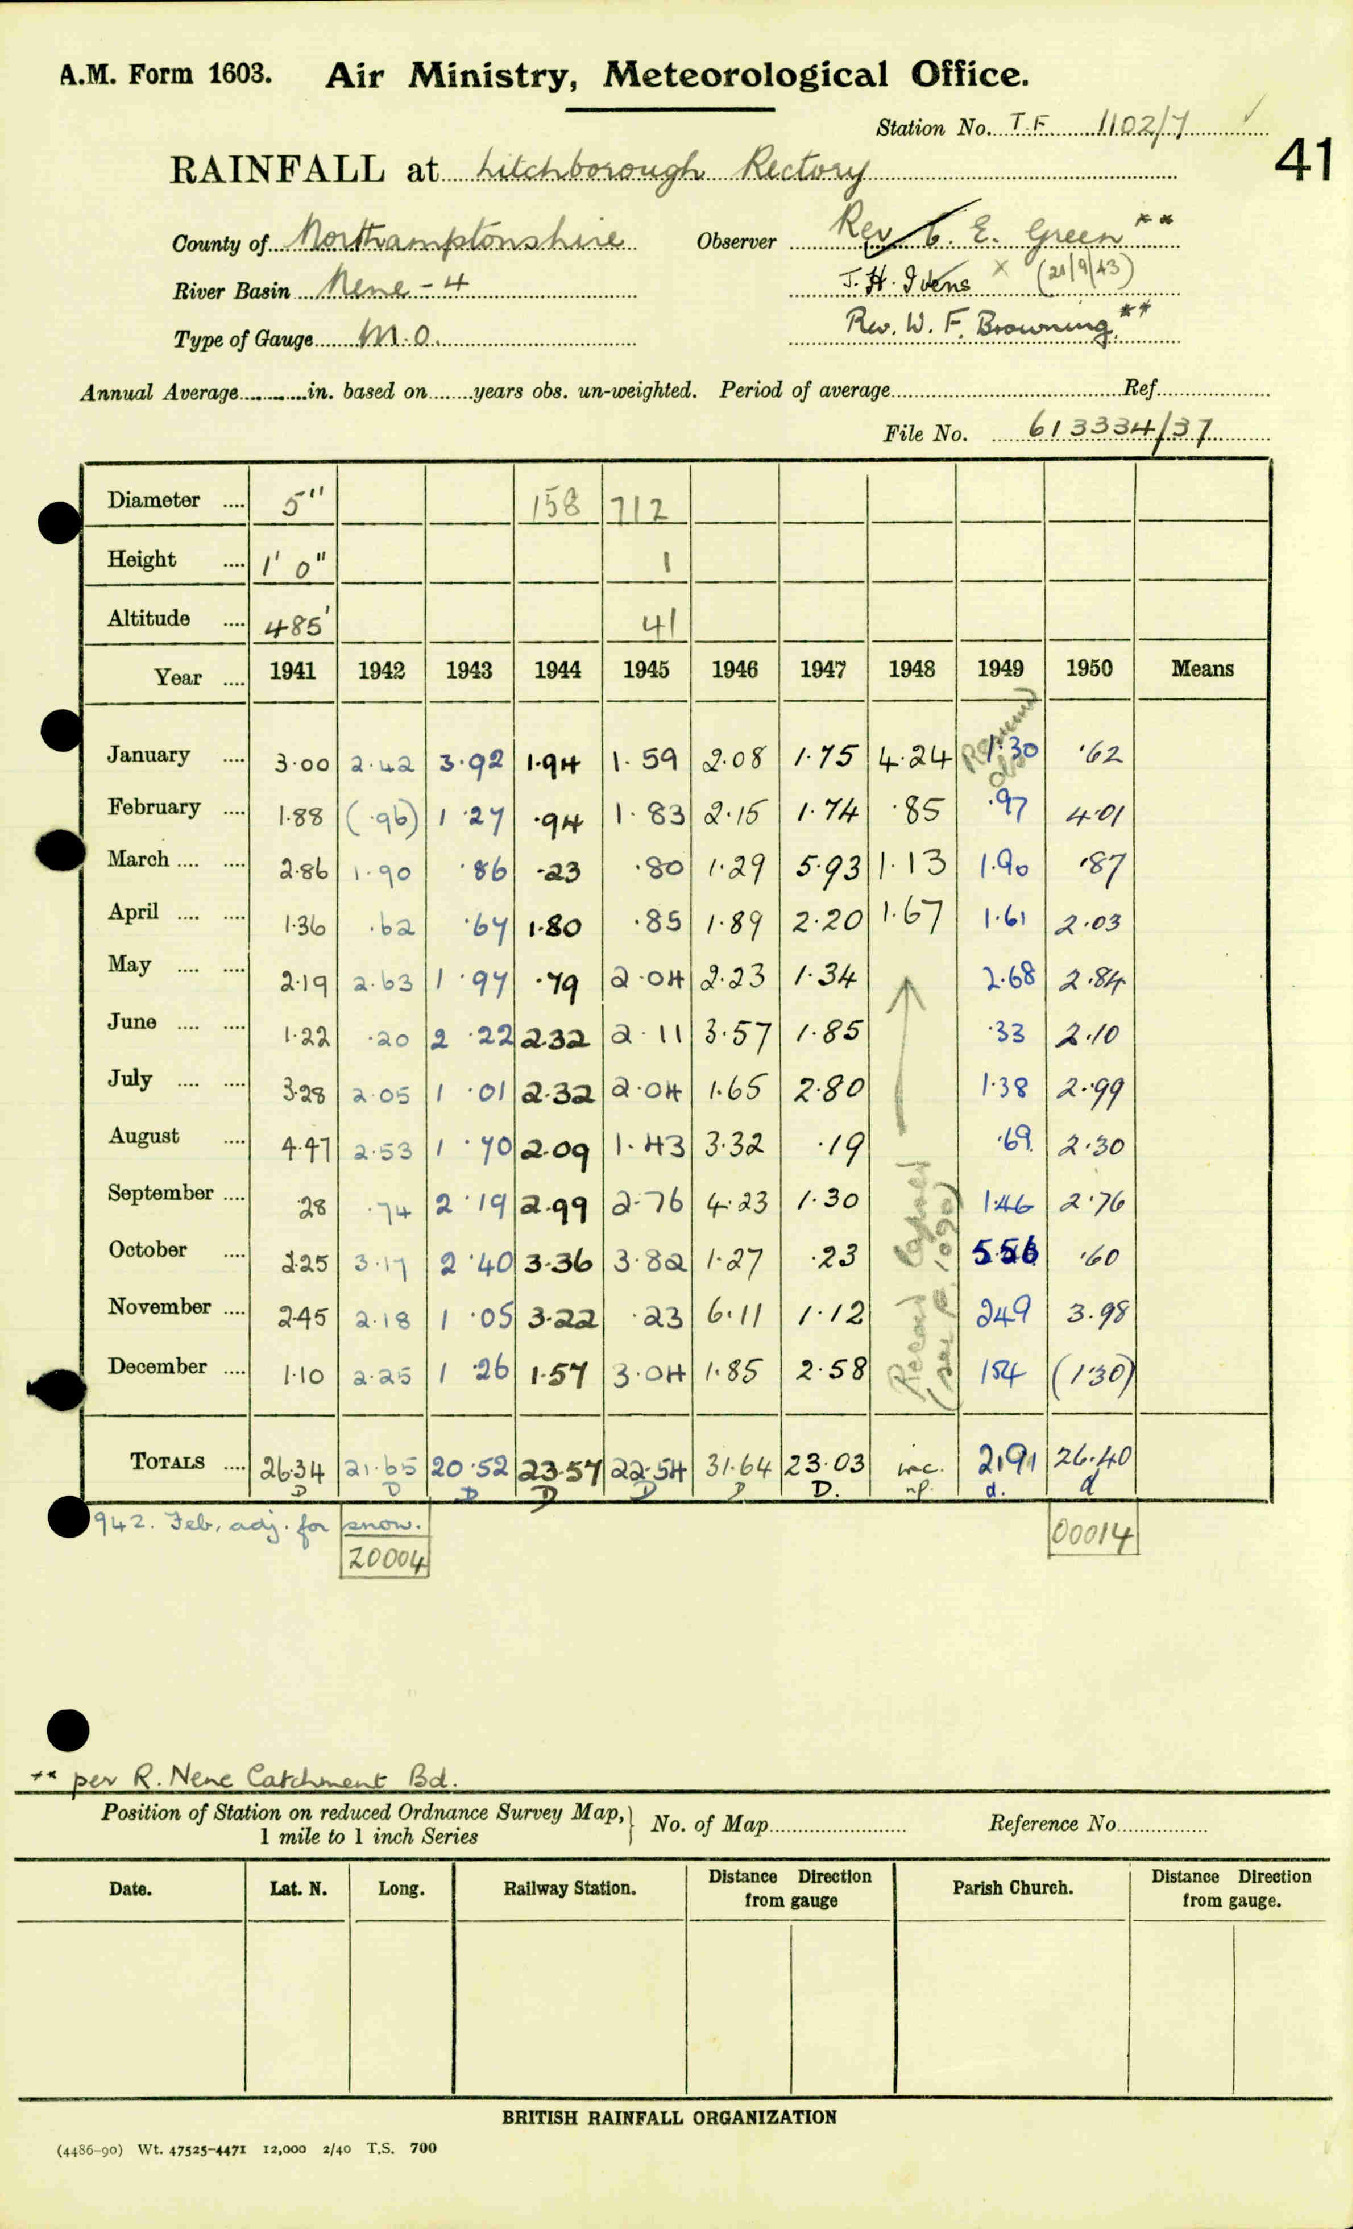 A.M. Form 1603. Air Ministry, Meteorological Office.
Station No. T.F 1102/7
41
RAINFALL at Litchborough Rectory
County of Northamptonshire Observer Rev. C. E. Green **
River Basin Nene - 4 J. H. Ivens × (21/9/43)
Type of Gauge M.O. Rev. W. F. Browning. **
Annual Average in. based on years obs. un-weighted. Period of average Ref
File No. 613334/37
Diameter 5" 158 712
Height 1' 0" 1
Altitude 485' 41
Year 1941 1942 1943 1944 1945 1946 1947 1948 1949 1950 Means
January 3.00 2.42 3.92 1.94 1.59 2.08 1.75 4.24 1.30 .62
February 1.88 (.96) 1.27 .94 1.83 2.15 1.74 .85 .97 4.01
March 2.86 1.90 .86 .23 .80 1.29 5.93 1.13 1.90 .87
April 1.36 .62 .67 1.80 .85 1.89 2.20 1.67 1.61 2.03
May 2.19 2.63 1.97 .79 2.04 2.23 1.34 2.68 2.84
June 1.22 .20 2.22 2.32 2.11 3.57 1.85 .33 2.10
July 3.28 2.05 1.01 2.32 2.04 1.65 2.80 1.38 2.99
August 4.47 2.53 1.70 2.09 1.43 3.32 .19 .69 2.30
September .28 .74 2.19 2.99 2.76 4.23 1.30 1.46 2.76
October 2.25 3.17 2.40 3.36 3.82 1.27 .23 5.56 .60
November 2.45 2.18 1.05 3.22 .23 6.11 1.12 2.49 3.98
December 1.10 2.25 1.26 1.57 3.04 1.85 2.58 1.54 (1.30)
Record lapsed
TOTALS 26.34 21.65 20.52 23.57 22.54 31.64 23.03 inc. 21.91 26.40
D D D D D D D. np. d. d
1942. Feb. adj. for snow. 00014
20004
** per R. Nene Catchment Bd.
Position of Station on reduced Ordnance Survey Map, 1 mile to 1 inch Series } No. of Map Reference No.
Date. Lat. N. Long. Railway Station. Distance Direction from gauge Parish Church. Distance Direction from gauge.
BRITISH RAINFALL ORGANIZATION
(4486-90) Wt. 47525-4471 12,000 2/40 T.S. 700